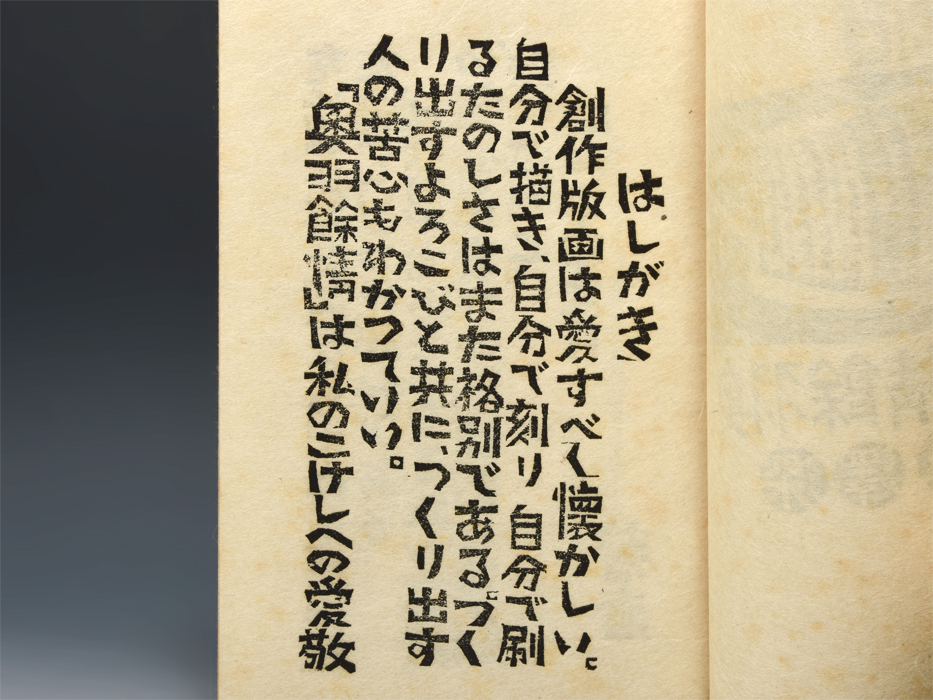 はしがき
創作版画は愛すべく懐かしい。
自分で描き、自分で刻り自分で刷
るたのしさはまた格別である。つく
り出すよろこびと共に、つくり出す
人の苦心もわかつていい。
「奥羽餘情」は私のこけしへの愛敬